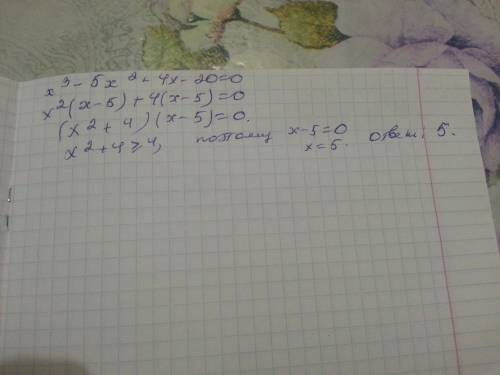 x³ - 5x² + 4x - 20 = 0
x²(x-5) + 4(x-5) = 0
(x² + 4)(x-5) = 0.
x² + 4 ≥ 4, поэтому x-5=0 ответ: 5.
x = 5.